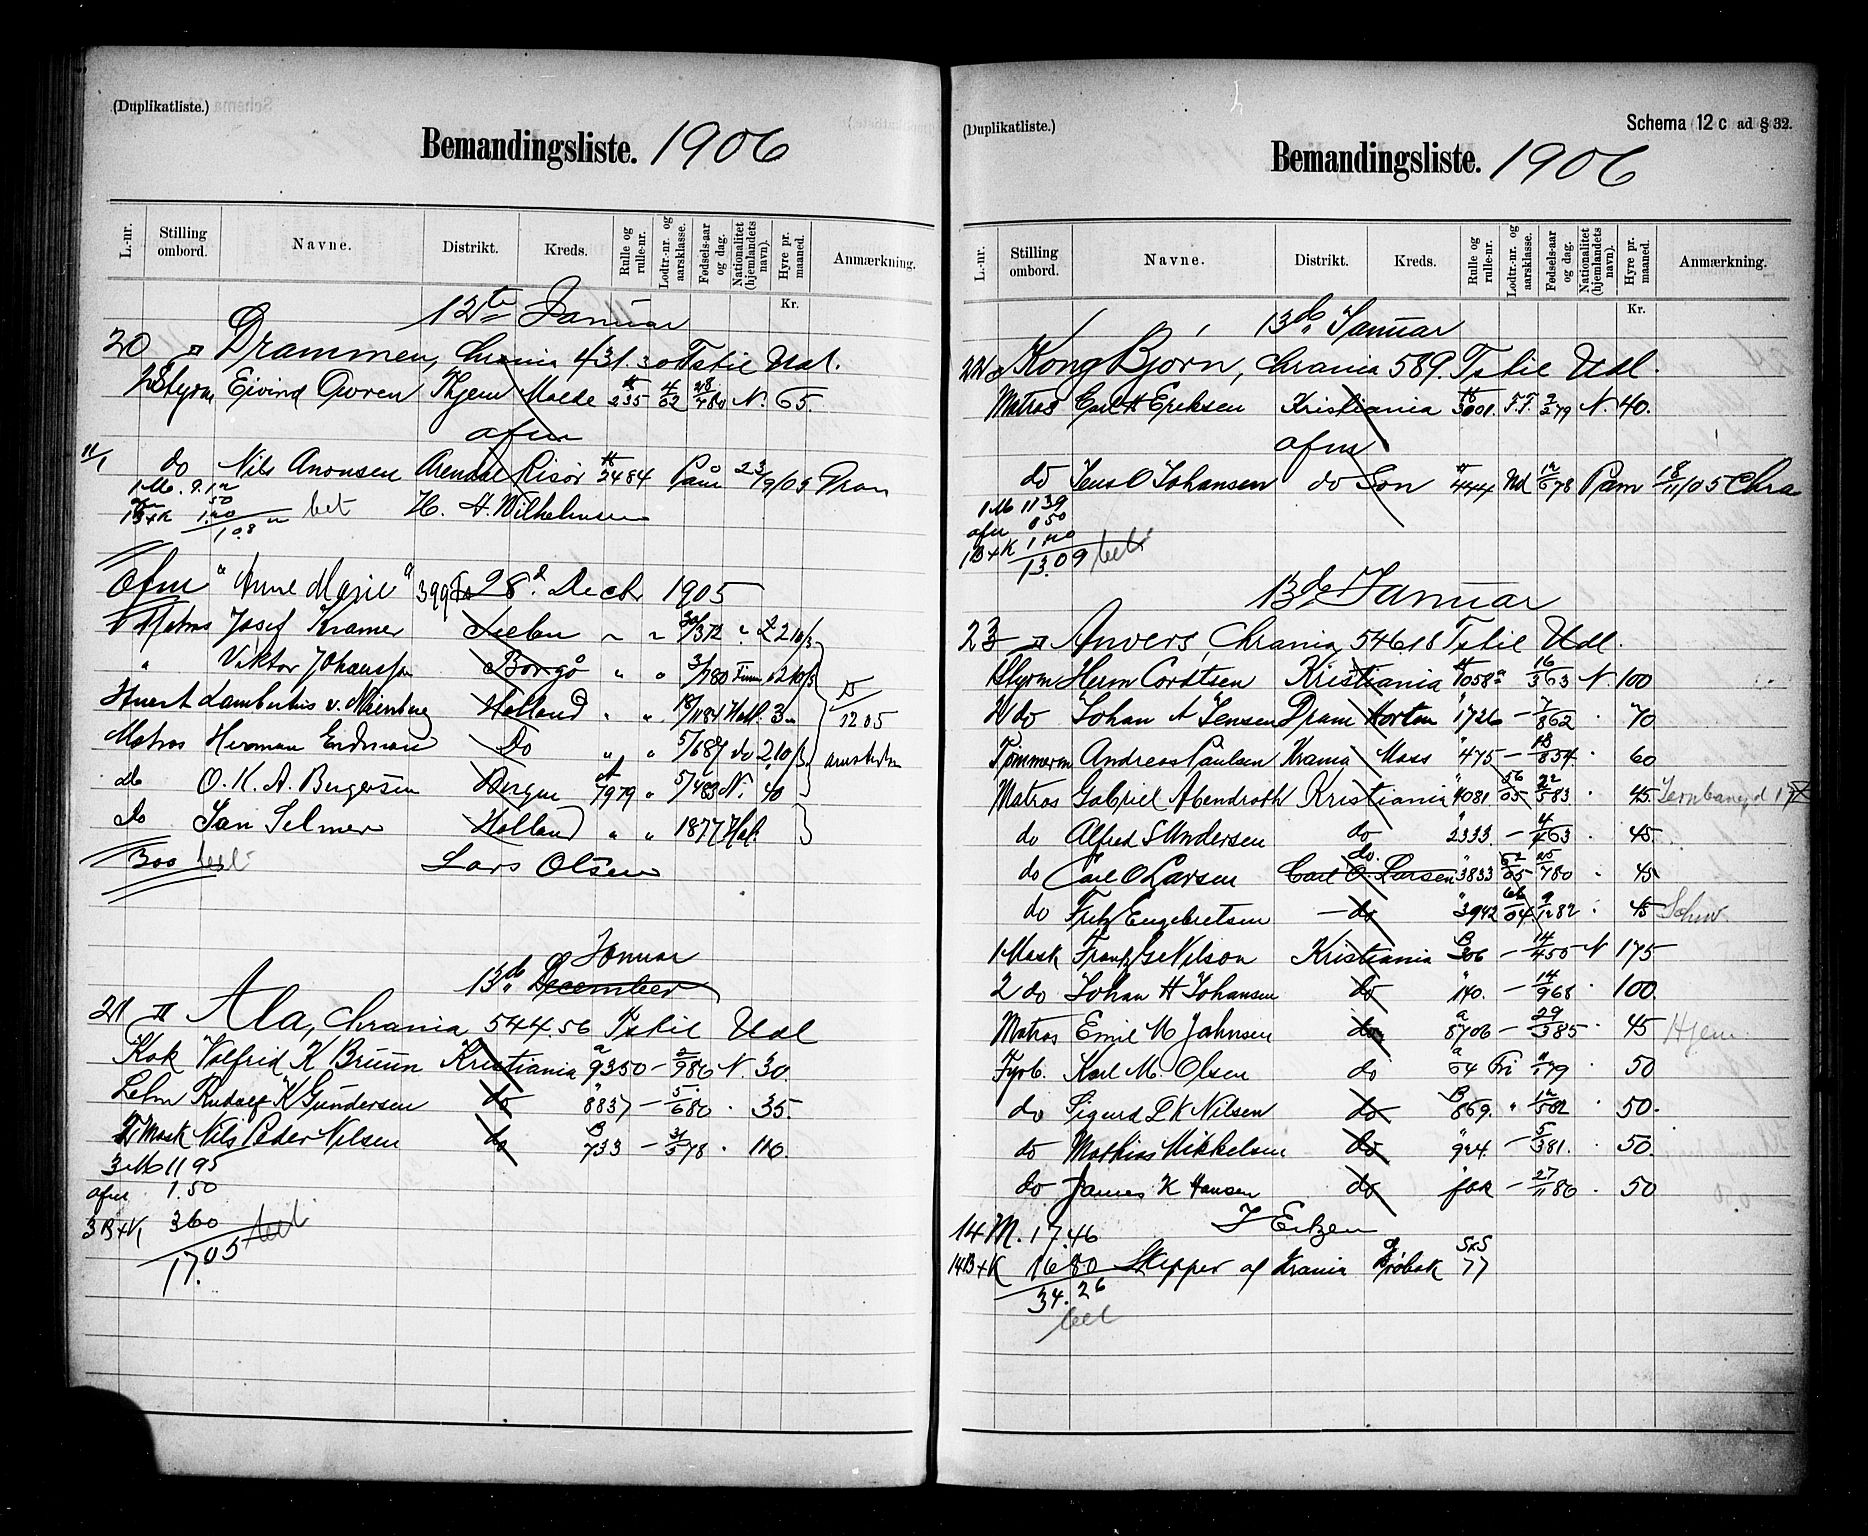 (Duplikatliste.)
Bemandingsliste. 1906
L.-nr. Stilling ombord. Navne. Distrikt. Kreds. Rulle og rulle-nr. Lodtr.-nr. og aarsklasse. Fødsels-aar og dag. Nationalitet (hjemlandets navn). Hyre pr. maaned. Anmærkning.
Kr.
12te Januar
20 Drammen, Chrania 431.30 Tstil Udl.
2 Styrm Eivind Owren Thjem Molde 235 4/02 28/480 N. 65.
afm
11/1 do Nils Anonsen Arendal Risør 2484 Paam 23/9/05 Dram
1 M. 9.12
afm 50
1B+K 1.20 bet H. H. Wilhelmsen
Afm "Anne Marie" 399 Ts 28d Decbr 1905
Matros Josef Kramer
" Viktor Johansson Borgå " " 3/780 Finn
Stuert Lambertus v. Holland " " 18/1184 Holl. 3
15/12 05
Matros Herman Erdman Do " " 5/687 do 2.10/3
do O. K. A. Bergersen Bergen 7979 " 5/483 N. 40
do Jan Selmer Holland " " 1877 Hol.
300 bet Lars Olsen
Januar
13de December
21 Ala, Chrania 544.56 Tstil Udl
Kok Valfrid K Bruun Kristiania a 9350 – 2/980 N. 30.
Letm Rudolf K Gundersen do " 8837 – 5/680 . 35.
2 Mask Nils Peder Nilsen do B 733 – 31/378 . 110.
3 M 11 95
afm 1.50
3 B+K 3 60
17.05 bet
(Duplikatliste.) Schema 12 c ad § 32.
Bemandingsliste. 1906
L.-nr. Stilling ombord. Navne. Distrikt. Kreds. Rulle og rulle-nr. Lodtr.-nr. og aarsklasse. Fødsels-aar og dag. Nationalitet (hjemlandets navn). Hyre pr. maaned. Anmærkning.
Kr.
13de Januar
22 Kong Bjørn, Chrania 589. Tstil Udl.
Matros Carl H Eriksen Kristiania 3001. F.F. 2/279 N. 40.
afm
do Jens O Johansen do Son 444 Ud 12/678 Paam 18/11/05 Chra
1 M 11 39
afm 0 50
1B+K 1 20
13.09 bet
13de Januar
23 Anvers, Chrania 546.18 Tstil Udl.
Styrm Herm Cordtsen Kristiania 1058 16/363 N. 100
2 do Johan A Jensen Dram Horten " 1726 – 7/862 . 70
Tømmerm Andreas Paulsen Krania Moss " 475 – 18/834 . 60
Matros Gabriel Abendroth Kristiania " 4081 56/05 22/583 . 45.
do Alfred S Andersen do " 2333. – 4/163 . 45.
do.
do Carl O Larsen Carl O. Larsen " 3833 62/05 25/780 . 45
do Fritz Engebretsen – do " 3942 66/04 9/1282 . 45
1 Mask Frantz G Nilson Kristiania B 306 – 14/450 N 175
2 do Johan H Johansen do " 140. – 14/968 . 100.
Matros Emil M Jahnsen do a 8706 – 29/385 . 45 Hjem
Fyrb. Karl M. Olsen do a 54 Fri 4/179 . 50
do Sigurd L K Nilsen do B 869. " 12/582 . 50.
do Mathias Mikkelsen do " 924. – 5/381. . 50.
do James K Hansen do – 27/1180 . 50
14 M. 17.46
14B+K 16 80 Skipper af Krania Drøbak S&S 77
34.26
bet